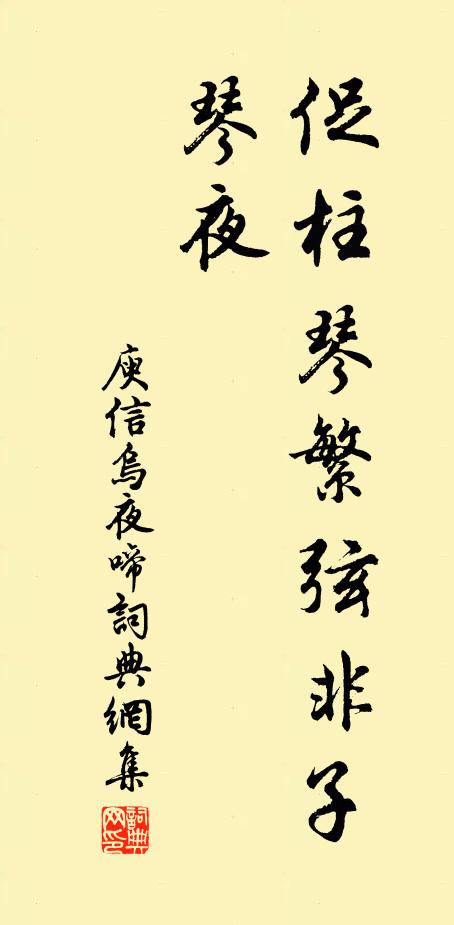 促柱琴繁弦非子
琴夜
庾信烏夜啼詞典網集
詞典網印